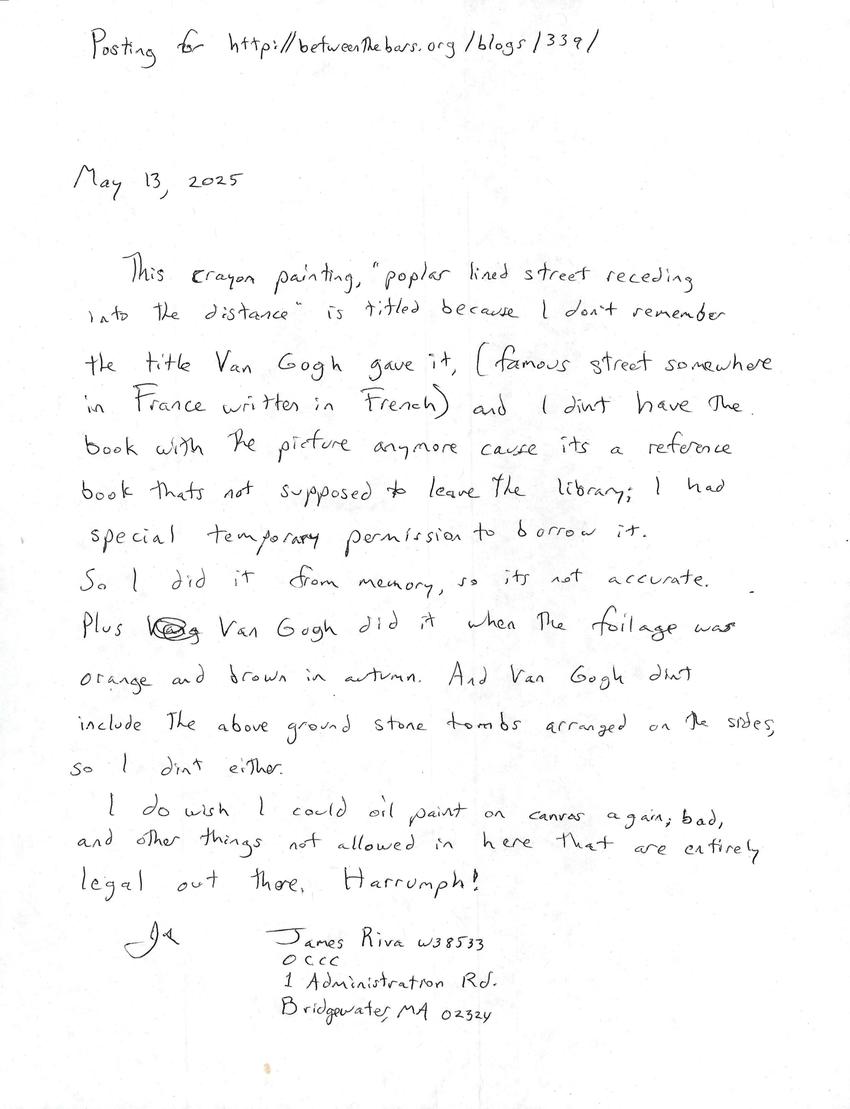 Posting for http://betweenthebars.org/blogs/339/
May 13, 2025
This crayon painting, "poplar lined street receding
into the distance" is titled because I don't remember
the title Van Gogh gave it, (famous street somewhere
in France written in French) and I dint have the
book with the picture anymore cause its a reference
book thats not supposed to leave the library; I had
special temporary permission to borrow it.
So I did it from memory, so its not accurate.
Plus Van Gogh did it when the foilage was
orange and brown in autumn. And Van Gogh dint
include the above ground stone tombs arranged on the sides,
so I dint either.
I do wish I could oil paint on canvas again; bad,
and other things not allowed in here that are entirely
legal out there. Harrumph!
James Riva W38533
OCCC
1 Administration Rd.
Bridgewater, MA 02324